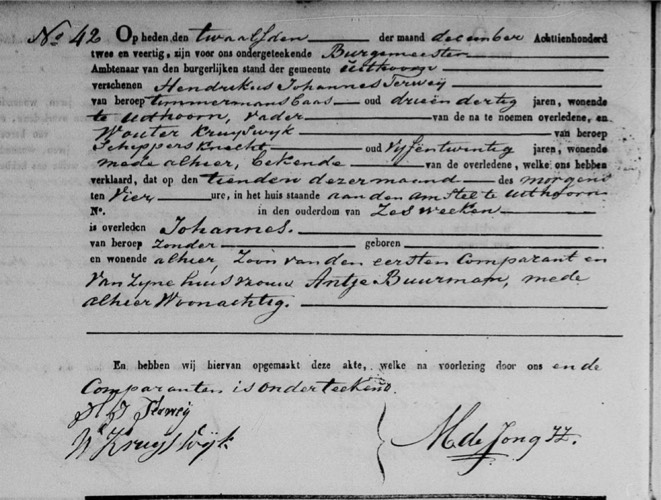 No 42 Op heden den twaalfden der maand december Achttienhonderd
twee en veertig, zijn voor ons ondergeteekende Burgemeester
Ambtenaar van den burgerlijken stand der gemeente Uithoorn
verschenen Hendrikus Johannes Terweij
van beroep timmermans baas oud drieën dertig jaren, wonende
te Uithoorn, vader van de na te noemen overledene, en
Wouter Kruijswyk van beroep
Schippers knecht oud Vyf en twintig jaren, wonende
mede alhier, bekende van de overledene, welke ons hebben
verklaard, dat op den tienden dezer maand des morgens
ten Vier ure, in het huis staande aan den Amstel te Uithoorn
No. in den ouderdom van Zes weeken
is overleden Johannes.
van beroep Zonder geboren
en wonende alhier, Zoon van den eersten Comparant en
Van Zyne huisvrouw Antje Buurman, mede
alhier Woonachtig.
En hebben wij hiervan opgemaakt deze akte, welke na voorlezing door ons en de
Comparanten is onderteekend.
H J Terweij
W Kruijswijk
M de Jong JZ.